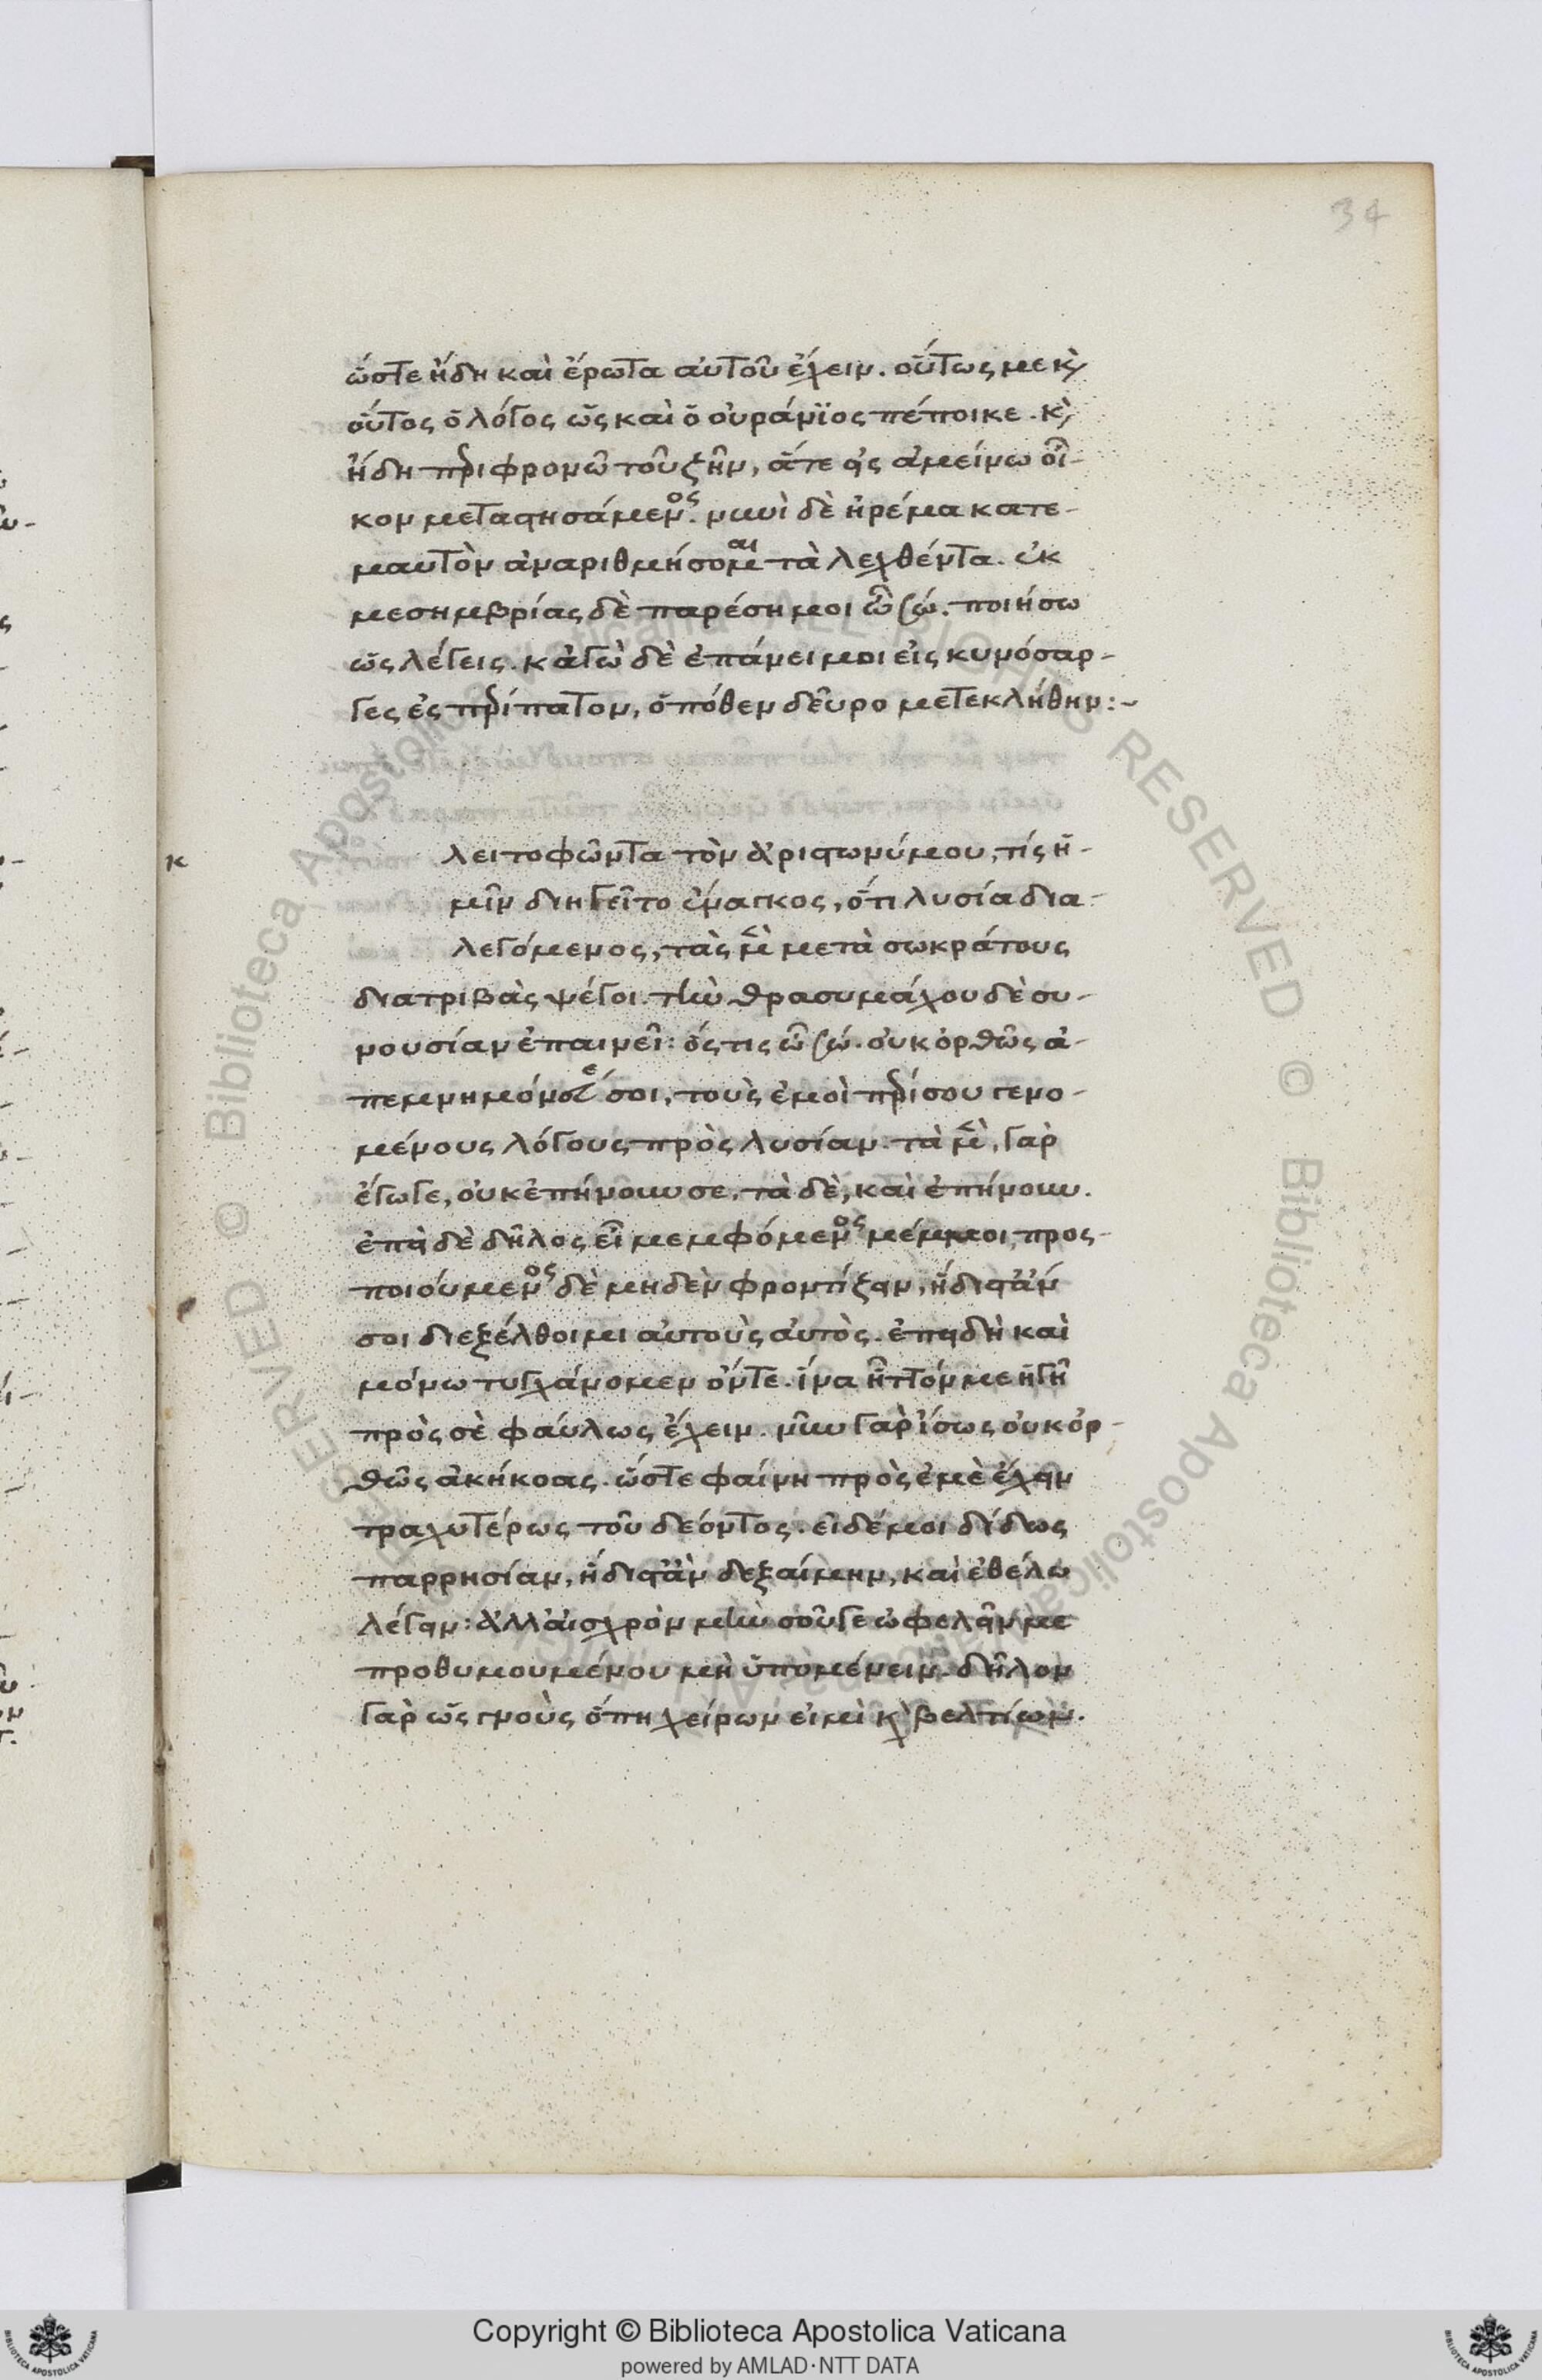 34
ὥστε ἤδη καὶ ἔρωτα αὐτοῦ ἔχειν. οὕτως με κ̀
οὗτος ὁ λόγος ὡς καὶ ὁ οὐράνϊος πέποικε. κ̀
ἤδη περιφρονῶ τοῦ ζῆν, ἅτε εἰς ἀμείνω οἶ-
κον μεταστησάμενος. νυνὶ δὲ ἠρέμα κατε-
μαυτὸν ἀναριθμήσομαι τὰ λεχθέντα. ἐκ
μεσημβρίας δὲ παρέσῃ μοι ὦ σώ. ποιήσω
ὡς λέγεις. κἀγὼ δὲ ἐπάνειμι εἰς κυνόσαρ-
γες ἐς περίπατον, ὁπόθεν δεῦρο μετεκλήθην:~
κ
λειτοφῶντα τὸν ἀριστωνύμου, τίς ἡ-
μῖν διηγεῖτο ἔναγκος, ὅτι λυσία δια-
λεγόμενος, τὰς μὲν μετὰ σωκράτους
διατριβὰς ψέγοι. τὴν θρασυμάχου δὲ συ-
νουσίαν ἐπαινεῖ: ὅς τις ὦ σώ. οὐκ ὀρθῶς ἀ-
πεμνημόνευέ σοι, τοὺς ἐμοὶ περί σου γενο-
μένους λόγους πρὸς λυσίαν. τὰ μὲν, γὰρ
ἔγωγε, οὐκ ἐπήνουν σε. τὰ δὲ, καὶ ἐπήνουν.
ἐπεὶ δὲ δῆλος εἶ μεμφόμενος μέν μοι, προς-
ποιούμενος δὲ μηδὲν φροντίζειν, ἥδιστ ἄν
σοι διεξέλθοιμι αὐτοὺς αὐτὸς. ἐπειδὴ καὶ
μόνω τυγχάνομεν ὄντε. ἵνα ἧττόν με ἡγῆ
πρὸς σὲ φαύλως ἔχειν. νῦν γὰρ ἴσως οὐκ ὀρ-
θῶς ἀκήκοας. ὥστε φαίνη πρὸς ἐμὲ ἔχειν
τραχυτέρως τοῦ δέοντος. εἰ δέ μοι δίδως
παρρησίαν, ἥδιστ ἂν δεξαίμην, καὶ ἐθέλω
λέγειν: ἀλλ αἰσχρὸν μὴν σοῦ γε ὠφελεῖν με
προθυμουμένου μὴ ὑπομένειν. δῆλον
γὰρ ὡς γνοὺς ὅπη χείρων εἰμὶ κ̀ βελτίων.
Copyright © Biblioteca Apostolica Vaticana
powered by AMLAD·NTT DATA